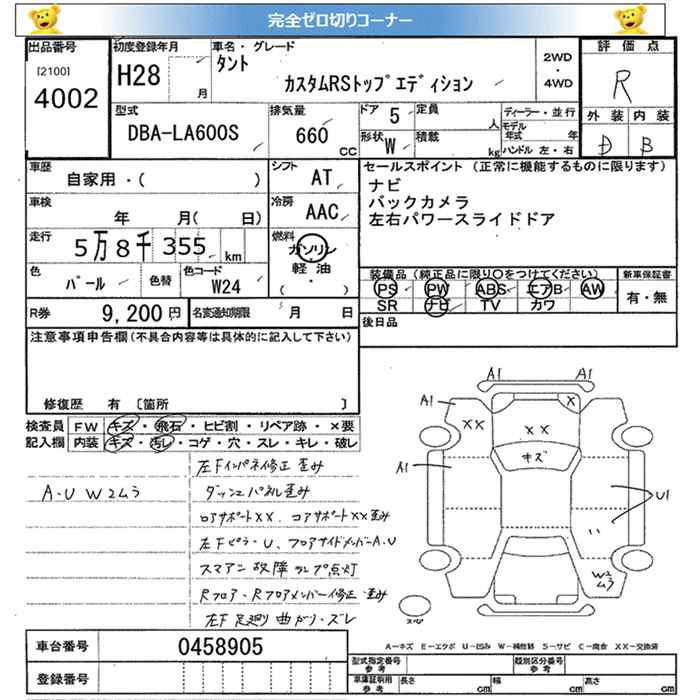 完全ゼロ切りコーナー
出品番号 [2100] 4002
初度登録年月 H28 月
車名・グレード タント カスタムRSトップエディション
2WD・4WD
評価点 R
外装 D 内装 B
型式 DBA-LA600S
排気量 660 cc
ドア 5 形状 W
定員 人 積載 kg
ディーラー・並行
モデル年式 年
ハンドル 左・右
車歴 自家用・( )
シフト AT
車検 年 月( 日)
冷房 AAC
走行 5万8千355 km
燃料 ガソリン 軽油 ・ ( )
色 パール 色替 色コード W24
R券 9,200円 名変通知期限 月 日
セールスポイント (正常に機能するものに限ります)
ナビ
バックカメラ
左右パワースライドドア
装備品(純正品に限り○をつけてください) 新車保証書
PS PW ABS エアB AW 有・無
SR ナビ TV カワ
後日品
注意事項申告欄(不具合内容等は具体的に記入して下さい)
修復歴 有 〔箇所 〕
検査員 FW キズ・飛石・ヒビ割・リペア跡・×要
記入欄 内装 キズ・汚レ・コゲ・穴・スレ・キレ・破レ
左Fインパネ修正 歪み
A.U W2ムラ ダッシュパネル歪み
ロアサポートXX. コアサポートXX歪み
左Fピラ-U、フロアサイドメンバーA.U
スマアシ故障ランプ点灯
Rフロア・Rフロアメンバー修正 歪み
左F足廻り曲がり・ズレ
A1 A1
A1 XX XX X
キズ
A1
U1
W2ムラ
スペア
A-キズ E-エクボ U-凹み W-補修跡 S-サビ C-腐食 XX-交換済
車台番号 0458905
登録番号
型式指定番号 参考 類別区分番号 参考
車庫証明用 参考 長さ cm 幅 cm 高さ cm